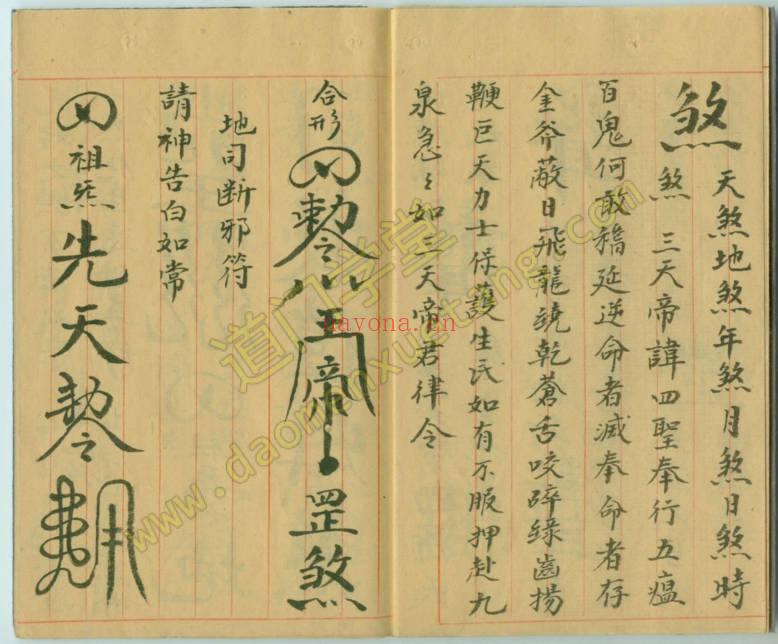 煞 天煞地煞年煞月煞日煞時
煞 三天帝諱四聖奉行五瘟
百鬼何敢稽延逆命者滅奉命者存
金斧蔽日飛龍遶乾蒼舌咬碎綠齒揚
鞭巨天力士保護生民如有不服押赴九
泉急々如三天帝君律令
合形
勅令 玉帝 罡煞
地司断邪符
請神告白如常
祖炁先天勅令
道门学堂
www.daomenxuetang.com
nayona.cn